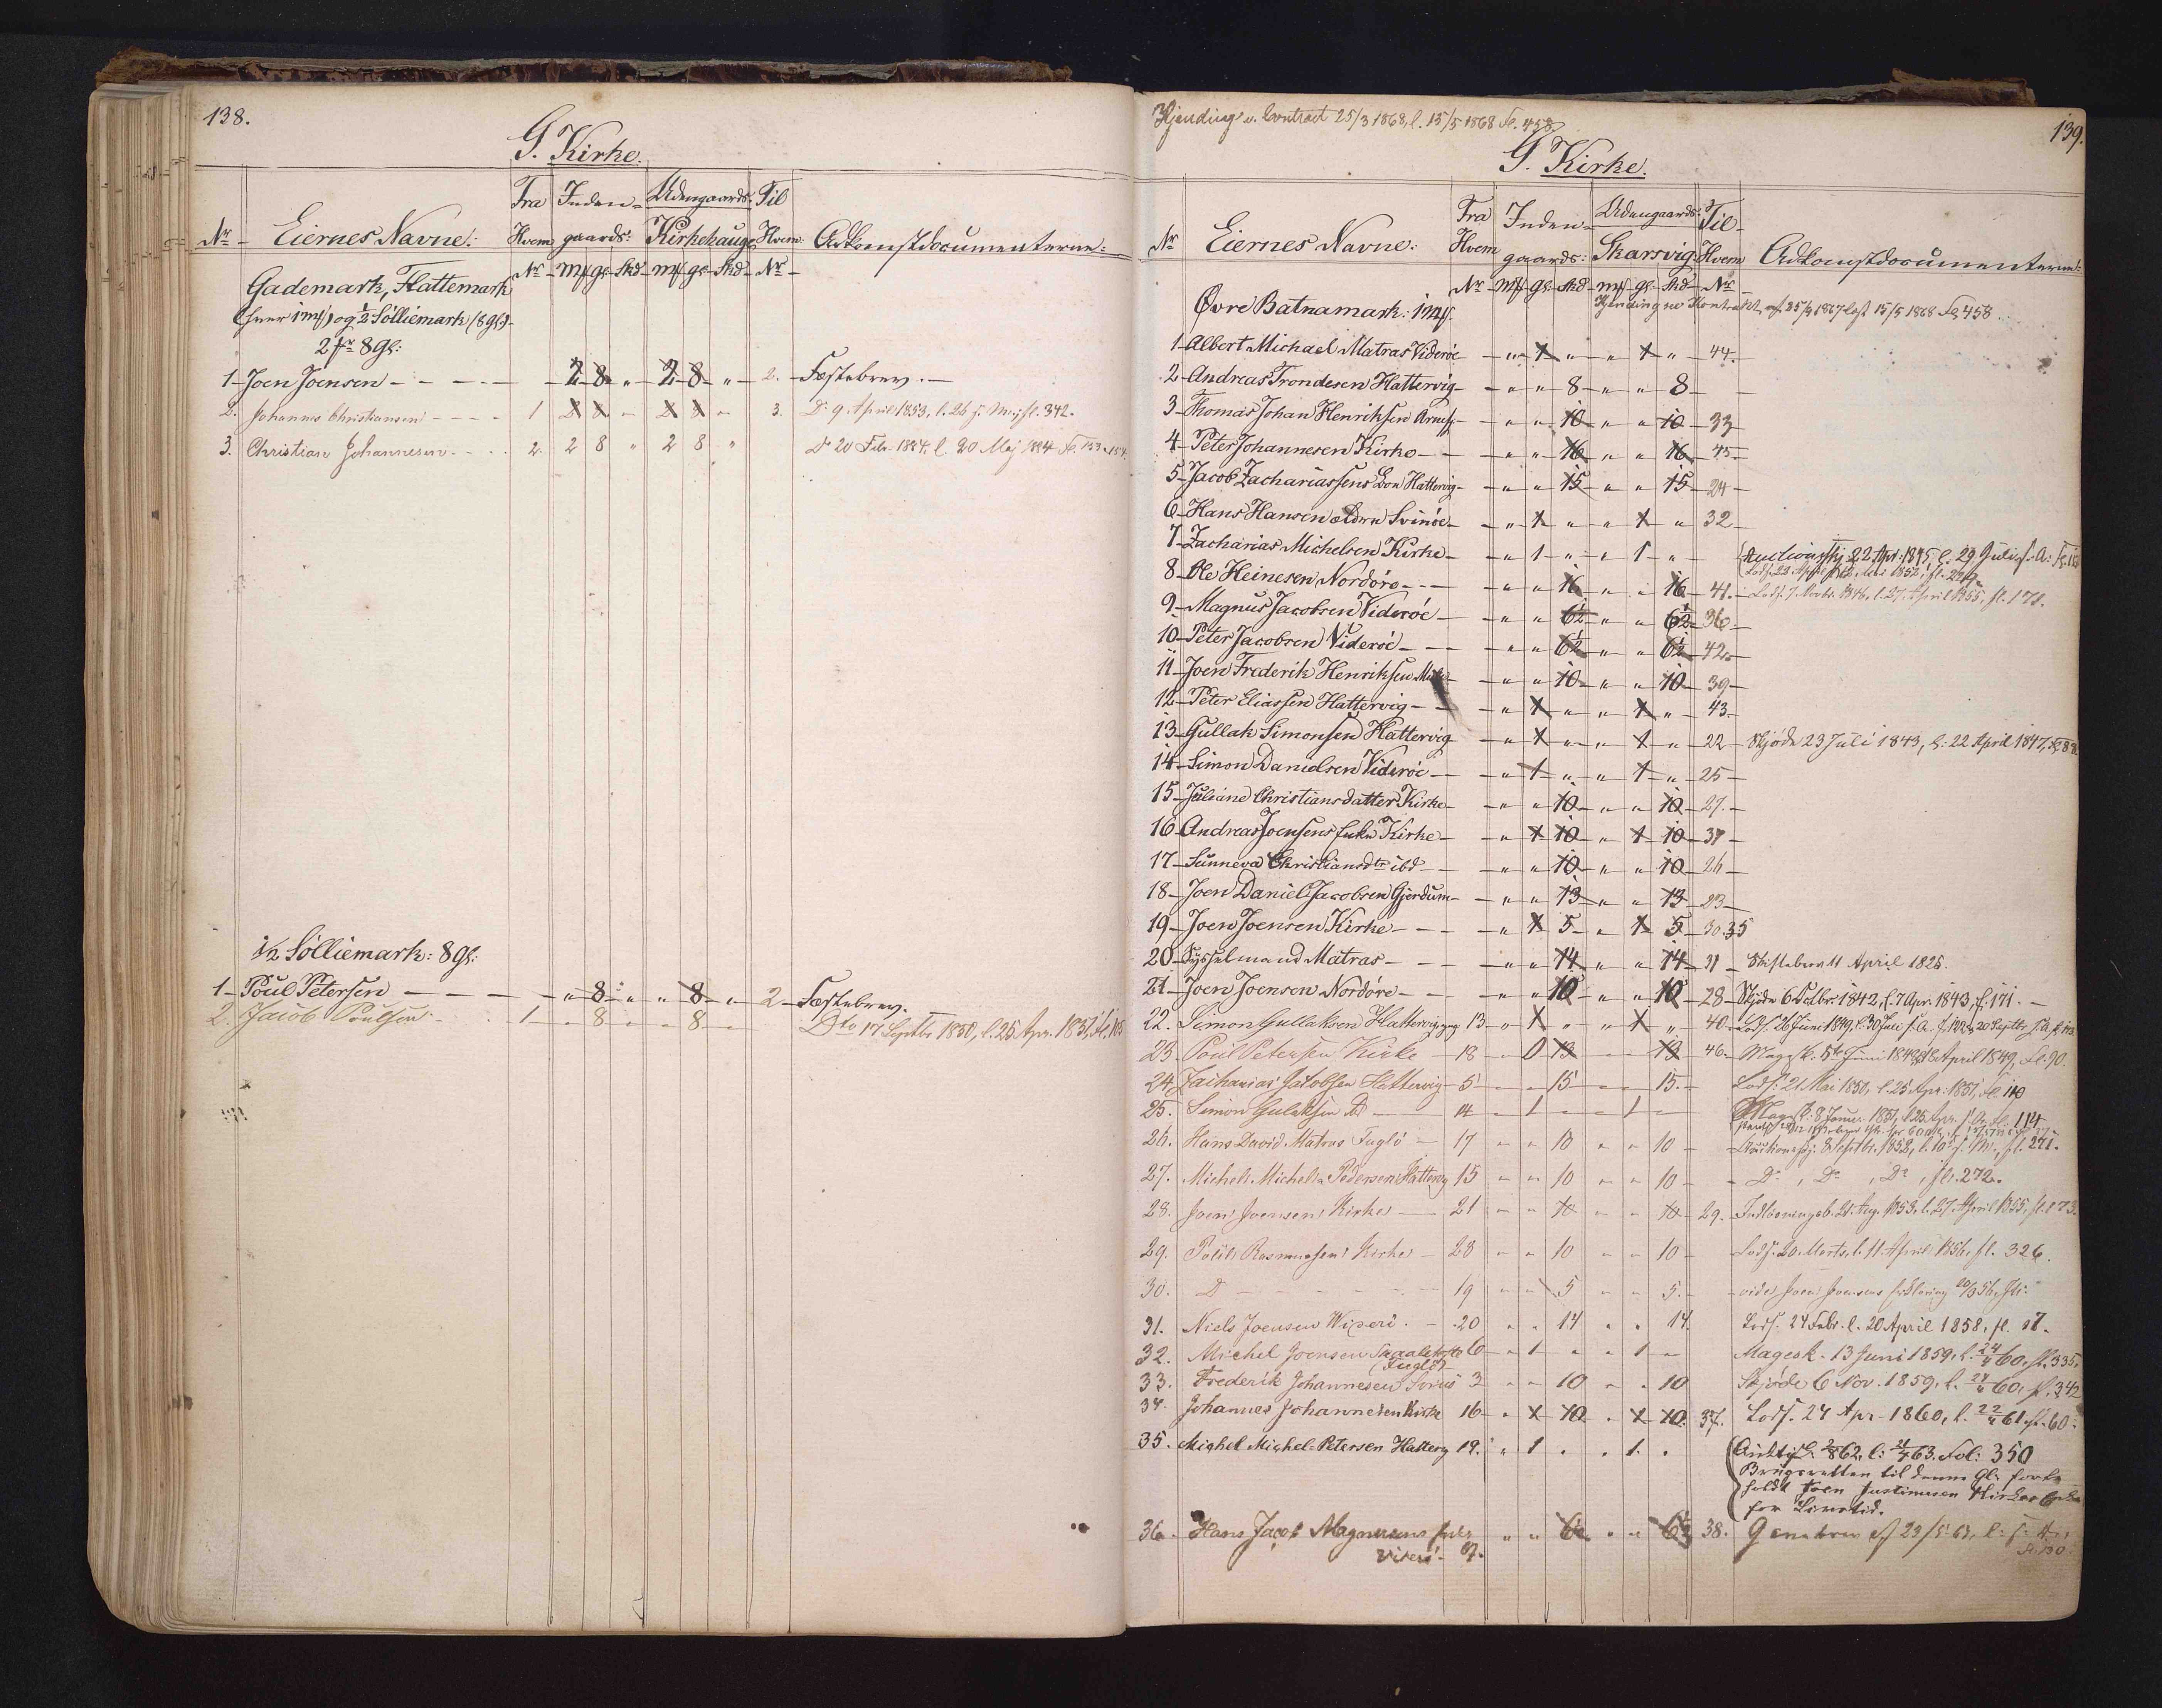 138.
G. Kirke.
Nr Eiernes Navne: Fra Hvem Inden-gaards: Udengaards: Kirkehauge Til Hvem: Adkomstdocumenterne:
Nr mk gl Skd mk gl Skd Nr
Gademark, Flattemark
(hver 1 mk) og 1/2 Sølliemark (8 gl.)
8 gl:
1 Joen Joensen 2 8 " 2 8 " 2. Fæstebrev.
2. Johannes Christiansen 1 2 8 2 8 3. Do 9. April 1853, l. 26 fl. 342.
3. Christian Johannesen 2. 2 8 " 2 8 " Do 20 Febr. 1884, l. 20 Maj 1884 Fo. 153-154.
1/2 Sølliemark: 8 gl:
1 Poul Petersen " 8 " " 8 " 2 Fæstebrev.
2. Jacob Poulsen 1 8 8 Dto 17 Septbr 1850, l. 25 Apr. 1851, fl. 105
Hjending v. Contract 25/3 1868, l. 15/5 1868 Fo. 458.
139.
G. Kirke.
Nr Eiernes Navne: Fra Hvem Inden-gaards: Udengaards: Skarsvig Til Hvem Adkomstdocumenterne:
Nr mk gl Skd mk gl Skd Nr
Øvre Batnamark: 12 mk. 15/5 1868 Fo. 458.
1 Albert Michael Matras Viderøe " 1 " " 1 " 44.
2 Andreas Trondesen Hattervig " " 8 " " 8
3 Thomas Johan Henriksen " " 10 " " 10 33
4 Peter Johannesen Kirke " " 16 " " 16 45
5 Jacob Zachariassens Hattervig " " 15 " " 15 24
6 Hans Hansen ældre Svinøe " 1 " " 1 " 32
7 Zacharias Michelsen Kirke " 1 " " 1 " 22 Apr: 1845, l. 29 Juli
8 Ole Heinesen Nordøre " " 16 " " 16 41. Lods. 7. Novbr. 1846, l. 27. April 1855, fl. 178.
9 Magnus Jacobsen Viderøe " " 6 1/2 " " 6 1/2 36
10 Peter Jacobsen Viderøe " " 6 1/2 " " 6 1/2 42.
11 Joen Frederik Henriksen " " 10 " " 10 39
12 Peter Eliassen Hattervig " 1 " " 1 " 43.
13 Gullak Simonsen Hattervig " 1 " " 1 " 22 Skjøde 23 Juli 1843, l: 22 April 1847,
14 Simon Danielsen Viderøe " 1 " " 1 " 25
15 Juliane Christiansdatter Kirke " " 10 " " 10 27.
16 Andreas Joensens Enke Kirke " 1 10 " 1 10 37
17 Sunneva Christiansdtr ibd " " 10 " " 10 26
18 Joen Daniel Jacobsen Gjerdum " " 13 " " 13 23
19 Joen Joensen Kirke " 1 5 " 1 5 30.35
20 Sysselmand Matras " " 14 " " 14 31 Skiftebrev 11 April 1826.
21 Joen Joensen Nordøre " " 10 " " 10 28 Skjøde 6 1842, l. 7 Apr. 1843, f. 171.
22. Simon Gullaksen Hattervig 13 " 1 " " 1 " 40 Lods. 26 Juni 1849, l. 30 Juli
23 Poul Petersen Kirke 18 0 13 13 46. Magesk. 5te Juni 1848, l. 18 April 1849, Fo. 90.
24 Zacharias Jacobsen Hattervig 5 15 15. Lods. 21 Mai 1850, l. 25 Apr. 1851, Fo. 110
25. Simon Gulaksen Do 14 1 1 Magesk. 8 Januar 1851, l. 25 Apr. fl. 114
26. Hans David Matras Fuglø 17 " " 10 " " 10 Auctionsskj. 8 Septbr. 1852, fl. 271.
27. Michel Michel Pedersen Hatterv 15 " " 10 " " 10 Do, Do, Do, fl. 272.
28. Joen Joensen Kirke 21 " " 10 " " 10 29. Indløsningsb. 21. Aug. 1853, l. 27. April 1855, fl. 173.
29. Poul Rasmussen Kirke 28 " " 10 " " 10 Lods. 20. Marts, l. 11. April 1856, fl. 326.
30. D 19 " " 5 " " 5. vide Joen Joensens Erklæring
31. Niels Joensen Viderö. 20 " " 14 " " 14. Lods. 24 Febr. l. 20 April 1858, fl. 17.
32. Michel Joensen (Fuglø) 6 1 " " 1 " Magesk. 13 Juni 1859, l. 24/4 60, fl. 335.
33. Frederik Johannesen Svinö 3 " " 10 " " 10 Skjøde 6 Nov. 1859, l. 24/4 60, fl. 342
34. Johannes Johannesen Kirke 16 1 10 1 10. 37. Lods. 24 Apr. 1860, l. 22/4 61. fl. 60.
35. Michel Michel Petersen Hatterv 19. " 1 . . 1. . l: 21/4 63. Fol: 350
Brugsretten til denne gl: forbe-
holdt Joen Justinussen Kirke
for Livstid.
36. Hans Jacob Magnussens " " 6 1/2 " " 6 1/2 38. Gavebrev af 23/5 63,
Viderö 9.